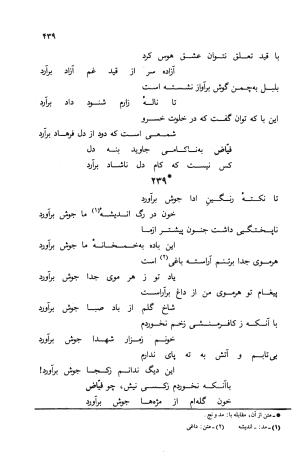 ۴۳۹
با قید تعلق نتوان عشق هوس کرد
آزاده سر از قید غم آزاد برآرد
بلبل به‌چمن گوش برآواز نشسته است
تا نالهٔ زارم شنود داد برآرد
این با که توان گفت که در خلوت خسرو
شمعی است که دود از دل فرهاد برآرد
فیّاض به‌ناکامی جاوید بنه دل
کس نیست که کام دل ناشاد برآرد
*۲۳۹
تا نکتهٔ رنگین ادا جوش برآورد
خون در رگ اندیشهٔ(۱) ما جوش برآورد
ناپختگیی داشت جنون پیشتر ازما
این باده به‌خمخانهٔ ما جوش برآورد
هرموی جدا برتنم آراسته باغی(۲) است
یاد تو ز هر موی جدا جوش برآورد
پیغام تو هرموی من از داغ برآراست
شاخ گلم از باد صبا جوش برآورد
با آنکه ز کافرمنشی زخم نخوردم
خونم زمزار شهدا جوش برآورد
بی‌تابم و آتش به ته پای ندارم
این دیگ ندانم زکجا جوش برآورد
باآنکه نخوردم زکسی نیش، چو فیّاض
خون گله‌ام از مژه‌ها جوش برآورد
*ـ متن از آن، مقابله با: مد و نج.
(۱)ـ مد: ـ اندیشه (۲)ـ متن: داغی